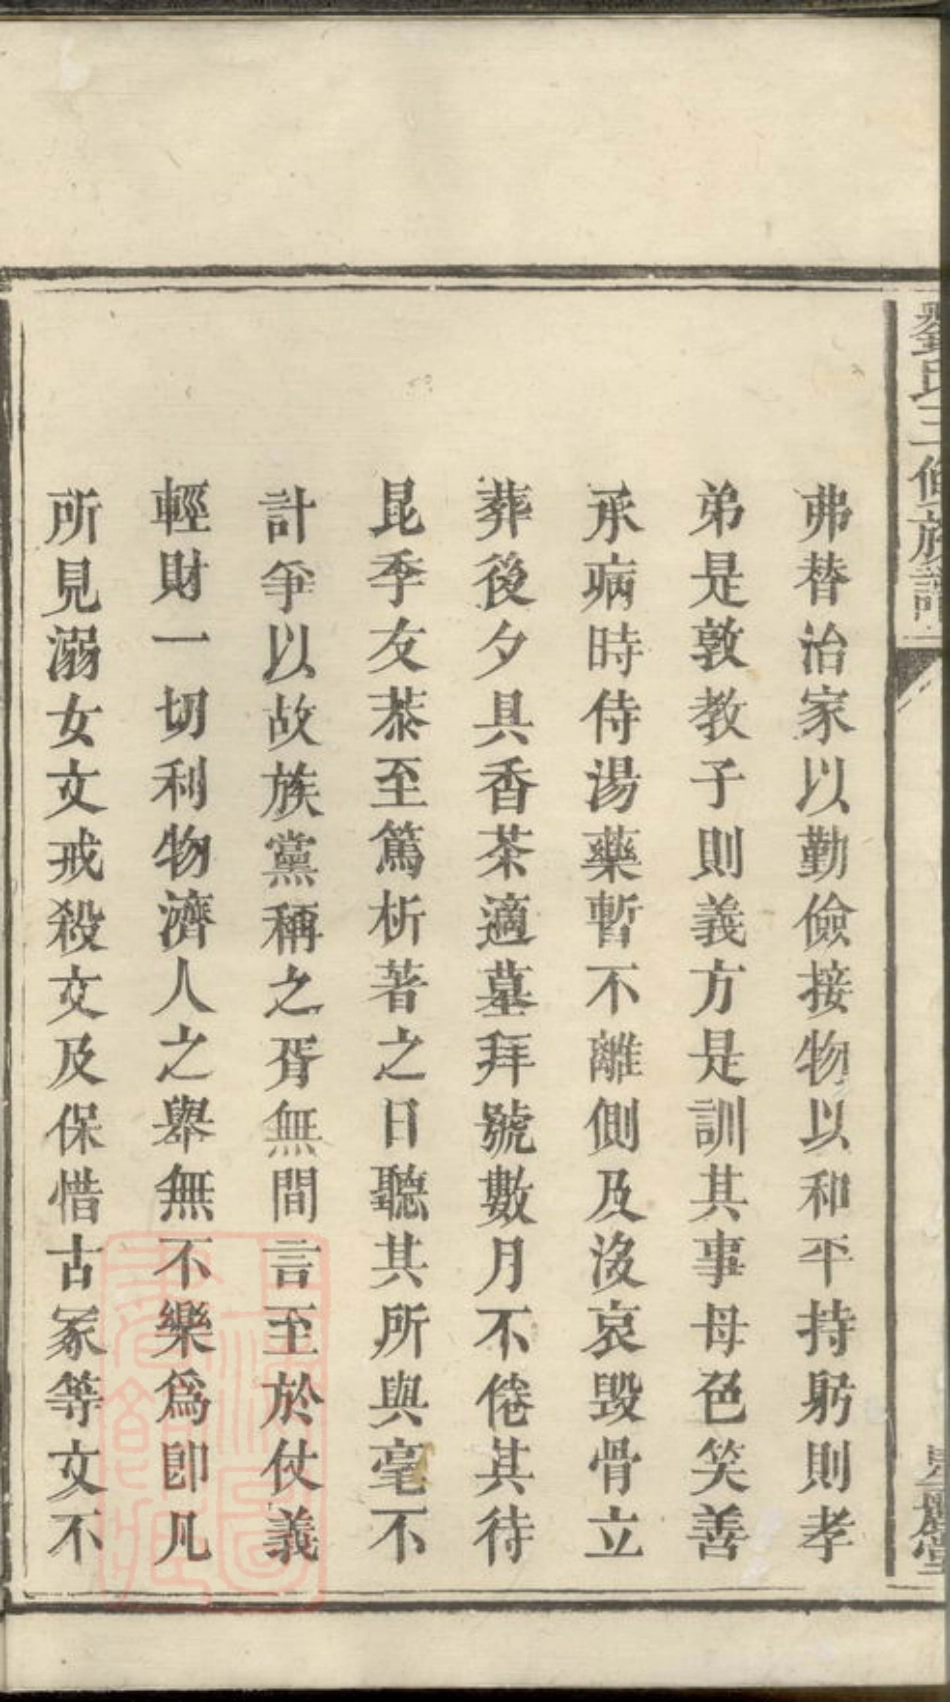 劉氏三修族譜
弗替治家以勤儉接物以和平持躬則孝
弟是敦教子則義方是訓其事母色笑善
承病時侍湯藥暫不離側及沒哀毀骨立
葬後夕具香茶適墓拜號數月不倦其待
昆季友恭至篤析著之日聽其所與毫不
計爭以故族黨稱之胥無間言至於仗義
輕財一切利物濟人之舉無不樂為卽凡
所見溺女文戒殺文及保惜古冢等文不